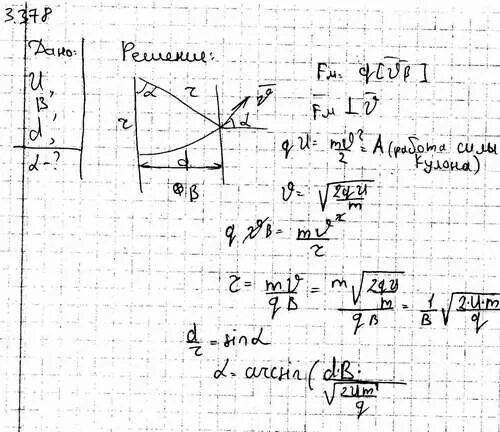 3.378
Дано:
U,
B,
d,
α-?
Решение:
α
r
r
d
⊗B
v̄
α
Fм = q[v̄B̄]
F̄м ⊥ v̄
qU = mv²/2 = A (работа силы
Кулона)
v = √(2qU/m)
qvB = mv²/r
r = mv/qB = m√(2qU/m)/qB = 1/B √(2·U·m/q)
d/r = sin α
α = arcsin(dB/√(2Um/q)